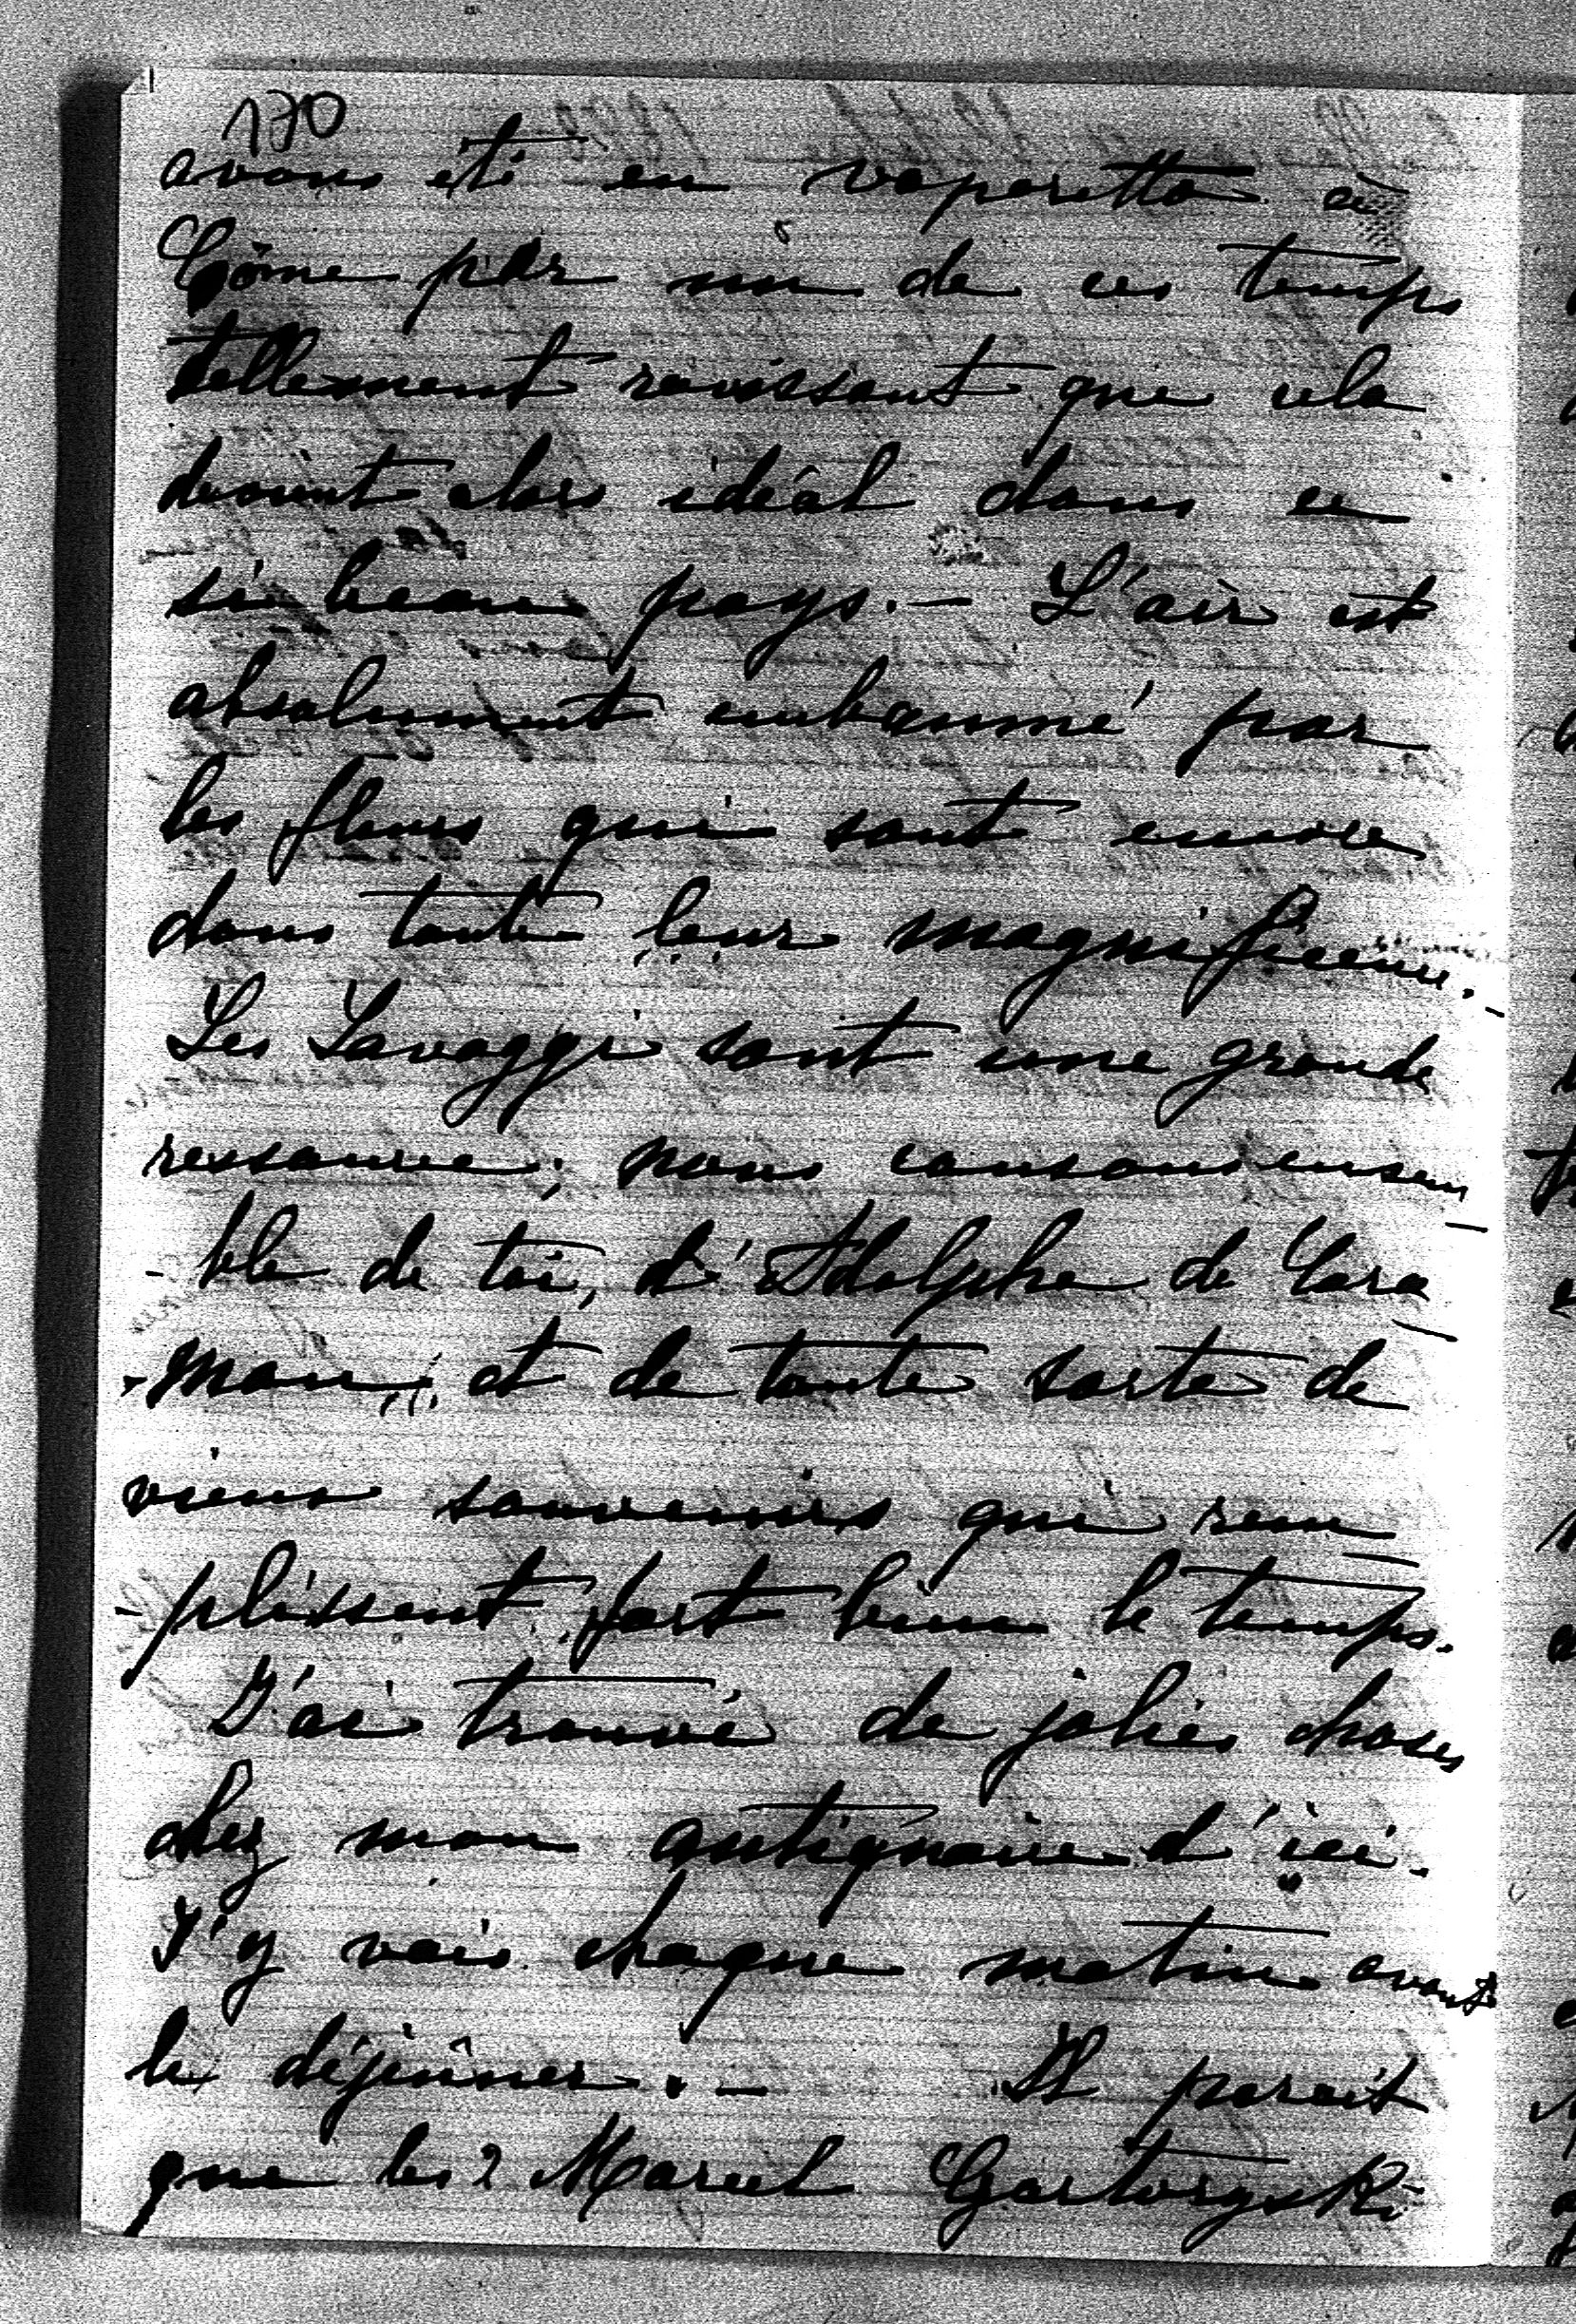 170
avons été en vaporetto à
Côme par un de ces temps
tellement ravissant que cela
devient alors idéal dans ce
si beau pays. — L'air est
absolument embaumé par
les fleurs qui sont encore
dans toute leur magnificence. -
Les Lavaggi sont une grande
ressource; nous causons ensem
- ble de toi, d'Adolphe de Cara
- man, et de toute sorte de
vieux souvenirs qui rem
- plissent fort bien le temps.
J'ai trouvé de jolies choses
chez mon antiquaire d'ici.
J'y vais chaque matin avant
le déjeûner. — Il parait
que les 2 Marcel